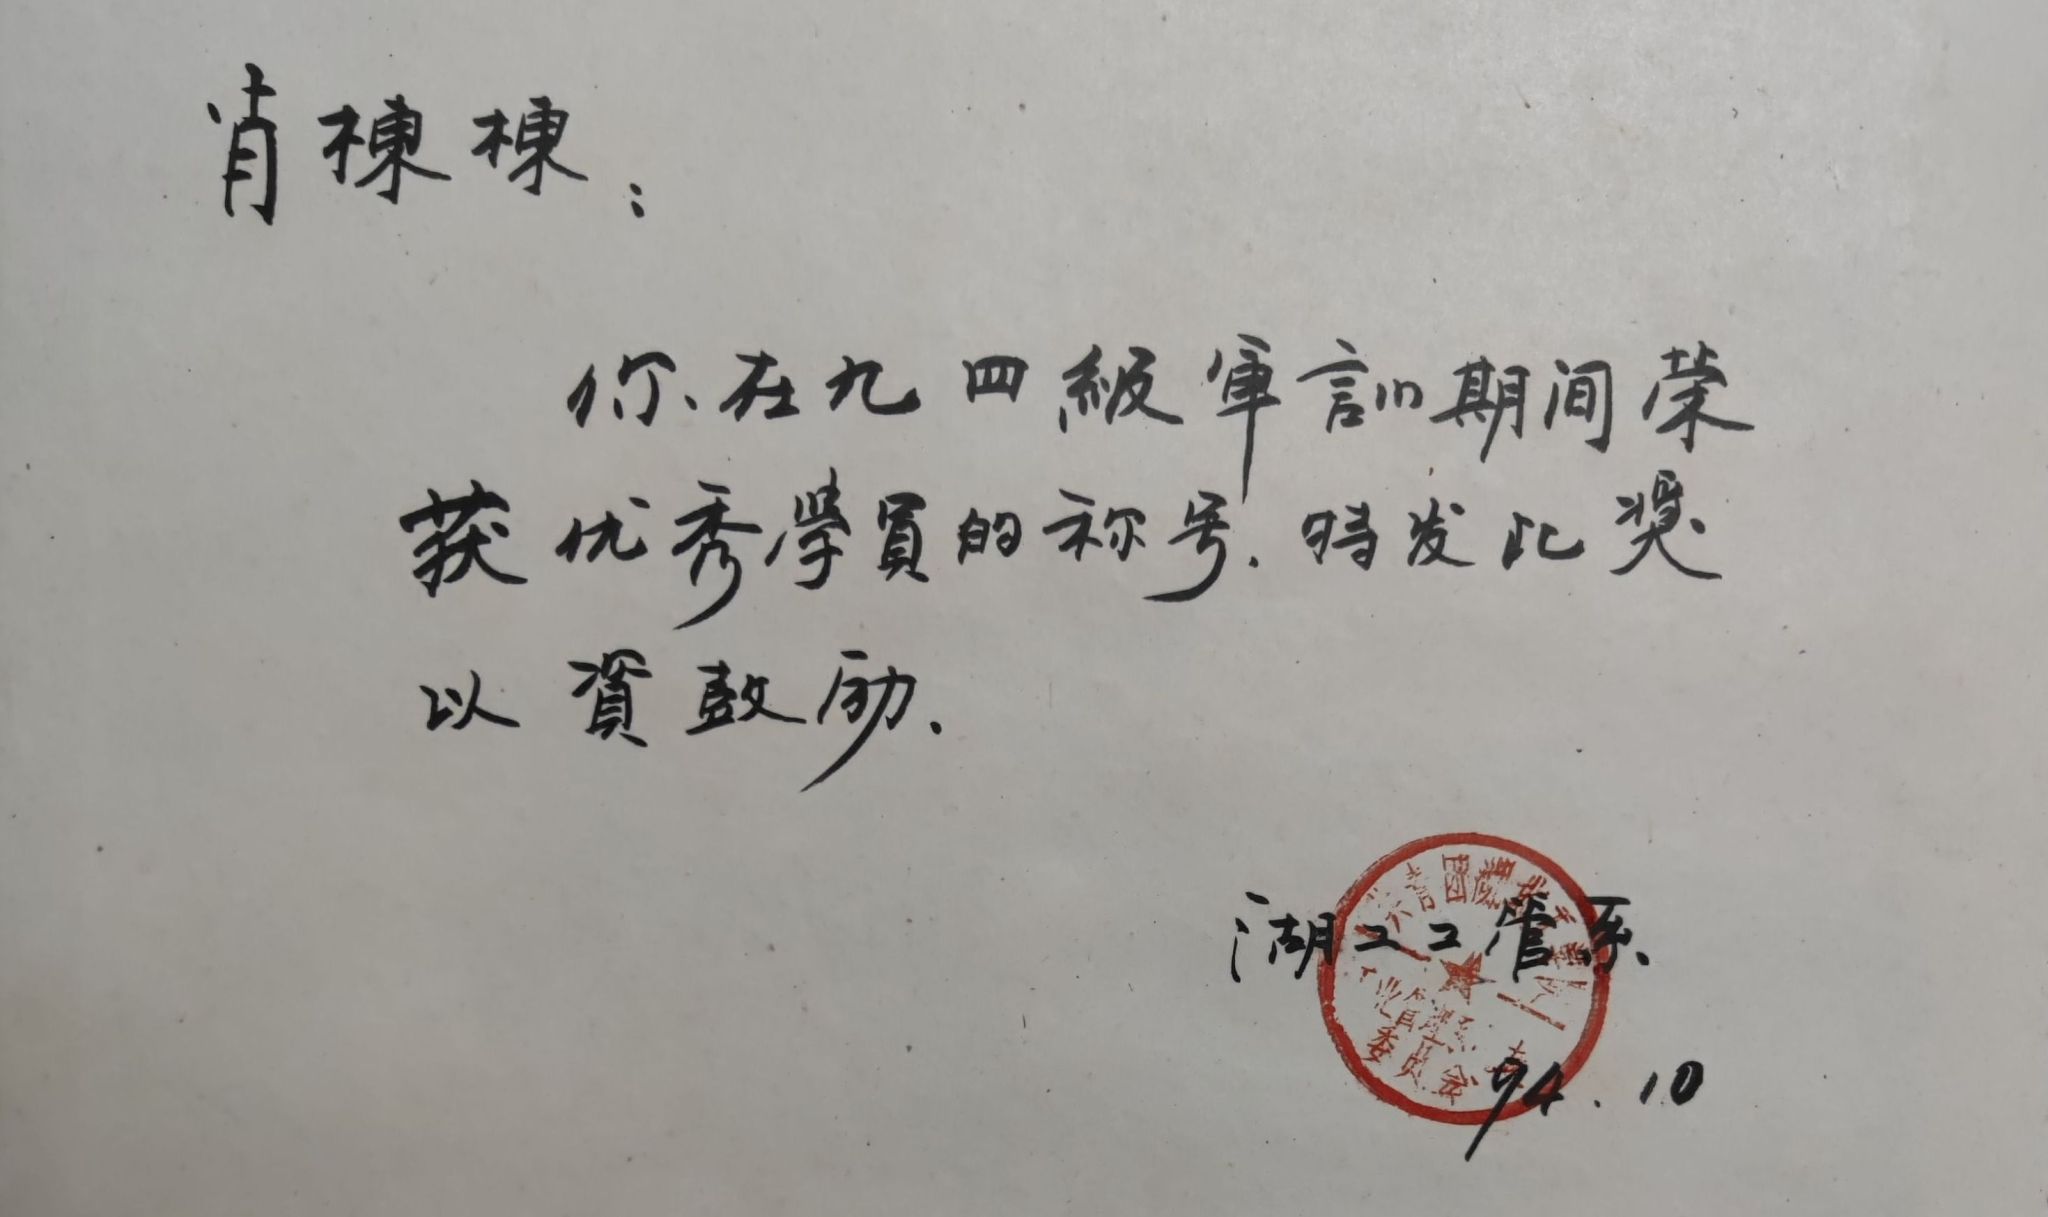 肖棟棟:
你在九四級軍訓期间荣
获优秀學員的称号.特发此奖
以資鼓励.
湖工工管系
94.10
委員会